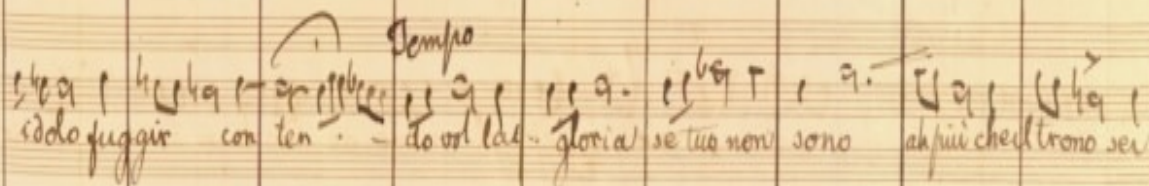 Tempo
idolo fuggir con ten - - do vol la - gloria se tuo non sono ah piu che il trono sei